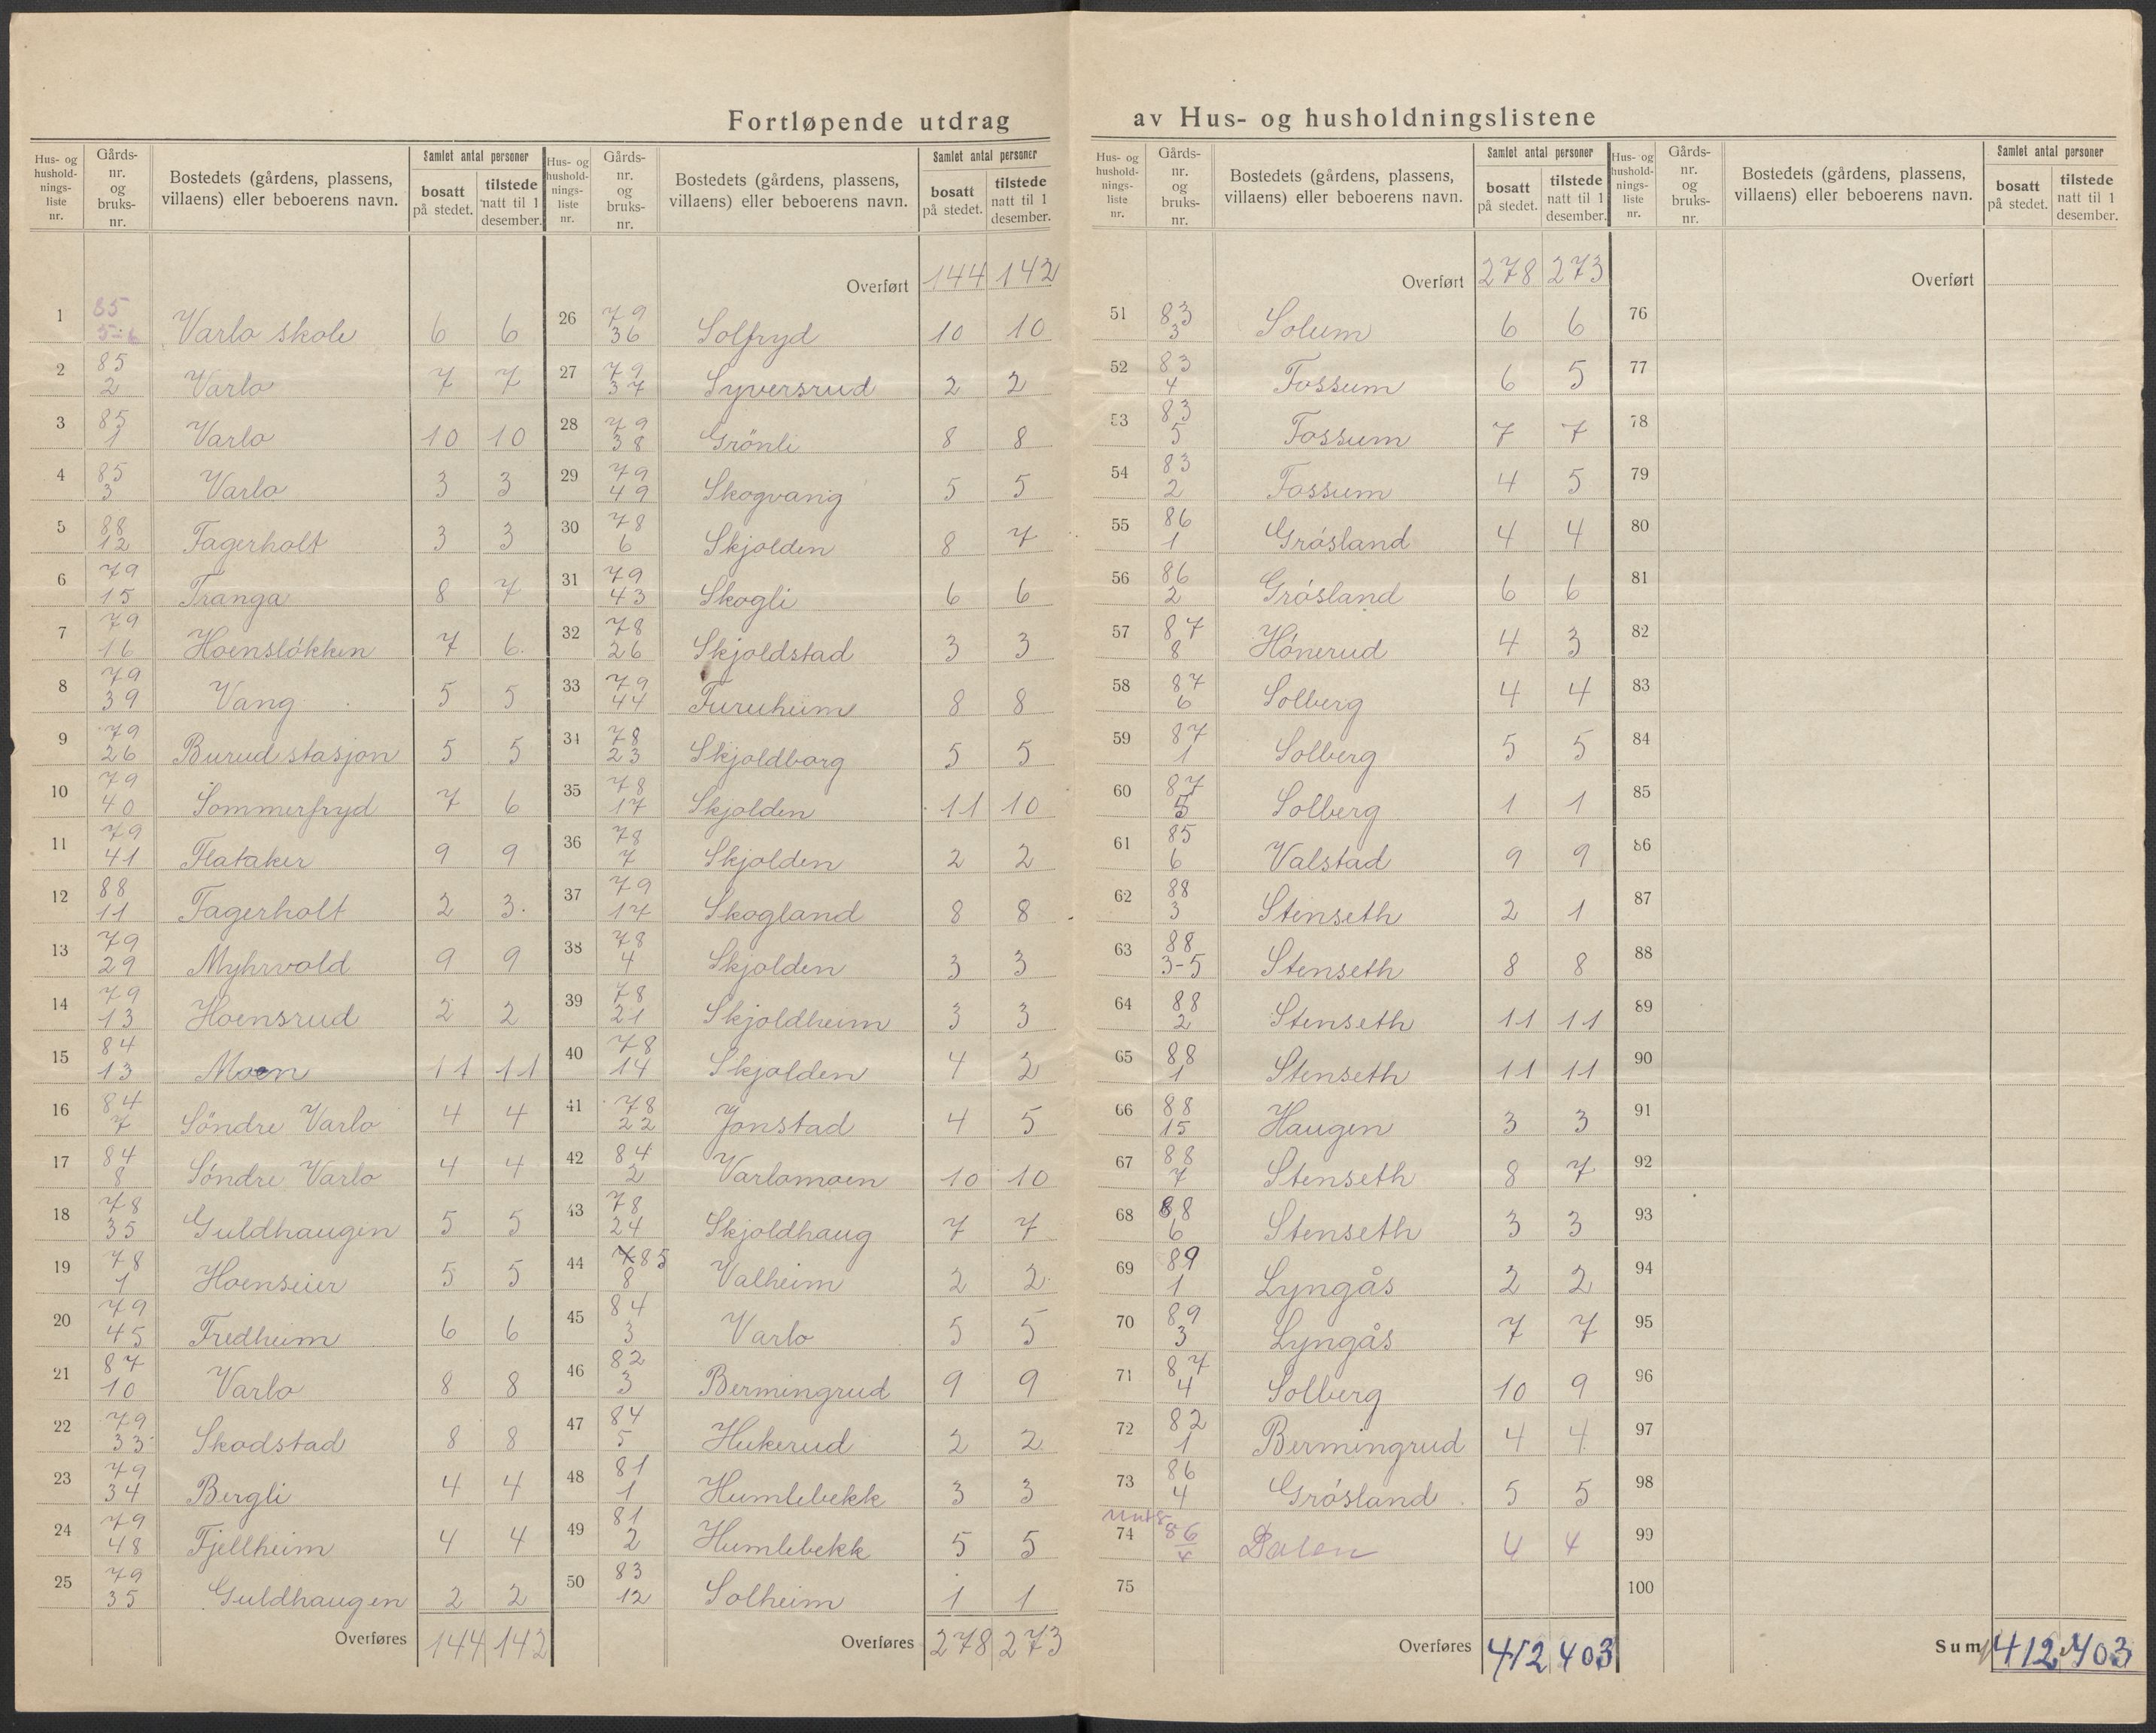 Fortløpende utdrag av Hus- og husholdningslistene
Hus- og hushold-nings-liste nr. | Gårds-nr. og bruks-nr. | Bostedets (gårdens, plassens, villaens) eller beboerens navn. | Samlet antal personer: bosatt på stedet. | tilstede natt til 1 desember.
1 | 85 5-6 | Varlo skole | 6 | 6
2 | 85 2 | Varlo | 7 | 7
3 | 85 1 | Varlo | 10 | 10
4 | 85 3 | Varlo | 3 | 3
5 | 88 12 | Fagerholt | 3 | 3
6 | 79 15 | Tranga | 8 | 7
7 | 79 16 | Hoensløkken | 7 | 6
8 | 79 39 | Vang | 5 | 5
9 | 79 26 | Burud stasjon | 5 | 5
10 | 79 40 | Sommerfryd | 7 | 6
11 | 79 41 | Flataker | 9 | 9
12 | 88 11 | Fagerholt | 2 | 3
13 | 79 29 | Myhrvold | 9 | 9
14 | 79 13 | Hoensrud | 2 | 2
15 | 84 13 | Moen | 11 | 11
16 | 84 7 | Söndre Varlo | 4 | 4
17 | 84 8 | Söndre Varlo | 4 | 4
18 | 78 35 | Guldhaugen | 5 | 5
19 | 78 1 | Hoenseier | 5 | 5
20 | 79 45 | Fredheim | 6 | 6
21 | 87 10 | Varlo | 8 | 8
22 | 79 33 | Skodstad | 8 | 8
23 | 79 34 | Bergli | 4 | 4
24 | 79 48 | Fjellheim | 4 | 4
25 | 79 35 | Guldhaugen | 2 | 2
Overføres | 144 | 142
Hus- og hushold-nings-liste nr. | Gårds-nr. og bruks-nr. | Bostedets (gårdens, plassens, villaens) eller beboerens navn. | Samlet antal personer: bosatt på stedet. | tilstede natt til 1 desember.
Overført | 144 | 142
26 | 79 36 | Solfryd | 10 | 10
27 | 79 37 | Syversrud | 2 | 2
28 | 79 38 | Grönli | 8 | 8
29 | 79 49 | Skogvang | 5 | 5
30 | 78 6 | Skjolden | 8 | 7
31 | 79 43 | Skogli | 6 | 6
32 | 78 26 | Skjoldstad | 3 | 3
33 | 79 44 | Furuheim | 8 | 8
34 | 78 23 | Skjoldborg | 5 | 5
35 | 78 17 | Skjolden | 11 | 10
36 | 78 7 | Skjolden | 2 | 2
37 | 79 17 | Skogland | 8 | 8
38 | 78 4 | Skjolden | 3 | 3
39 | 78 21 | Skjoldheim | 3 | 3
40 | 78 14 | Skjolden | 4 | 2
41 | 78 22 | Jonstad | 4 | 5
42 | 84 2 | Varlomoen | 10 | 10
43 | 78 24 | Skjoldhaug | 7 | 7
44 | 85 8 | Valheim | 2 | 2
45 | 84 3 | Varlo | 5 | 5
46 | 82 3 | Bermingrud | 9 | 9
47 | 84 5 | Hukerud | 2 | 2
48 | 81 1 | Humlebekk | 3 | 3
49 | 81 2 | Humlebekk | 5 | 5
50 | 83 12 | Solheim | 1 | 1
Overføres | 278 | 273
Hus- og hushold-nings-liste nr. | Gårds-nr. og bruks-nr. | Bostedets (gårdens, plassens, villaens) eller beboerens navn. | Samlet antal personer: bosatt på stedet. | tilstede natt til 1 desember.
Overført | 278 | 273
51 | 83 3 | Solum | 6 | 6
52 | 83 4 | Fossum | 6 | 5
53 | 83 5 | Fossum | 7 | 7
54 | 83 2 | Fossum | 4 | 5
55 | 86 1 | Grósland | 4 | 4
56 | 86 2 | Grósland | 6 | 6
57 | 87 8 | Hónerud | 4 | 3
58 | 87 6 | Solberg | 4 | 4
59 | 87 1 | Solberg | 5 | 5
60 | 87 5 | Solberg | 1 | 1
61 | 85 6 | Valstad | 9 | 9
62 | 88 3 | Stenseth | 2 | 1
63 | 88 3-5 | Stenseth | 8 | 8
64 | 88 2 | Stenseth | 11 | 11
65 | 88 1 | Stenseth | 11 | 11
66 | 88 15 | Haugen | 3 | 3
67 | 88 7 | Stenseth | 8 | 7
68 | 88 6 | Stenseth | 3 | 3
69 | 89 1 | Lyngås | 2 | 2
70 | 89 3 | Lyngås | 7 | 7
71 | 87 4 | Solberg | 10 | 9
72 | 82 1 | Bermingrud | 4 | 4
73 | 86 4 | Grósland | 5 | 5
74 | 86 4 | Dalen | 4 | 4
75
Overføres | 412 | 403
Hus- og hushold-nings-liste nr. | Gårds-nr. og bruks-nr. | Bostedets (gårdens, plassens, villaens) eller beboerens navn. | Samlet antal personer: bosatt på stedet. | tilstede natt til 1 desember.
Overført
76
77
78
79
80
81
82
83
84
85
86
87
88
89
90
91
92
93
94
95
96
97
98
99
100
Sum | 412 | 403